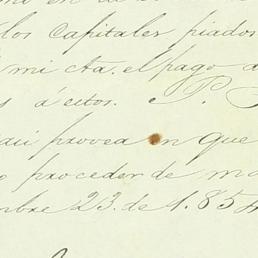 los capitales piados
mi cta. el pago a
s áestos. P.
provea en que
proceder de ma
mbre 23. de 1.854